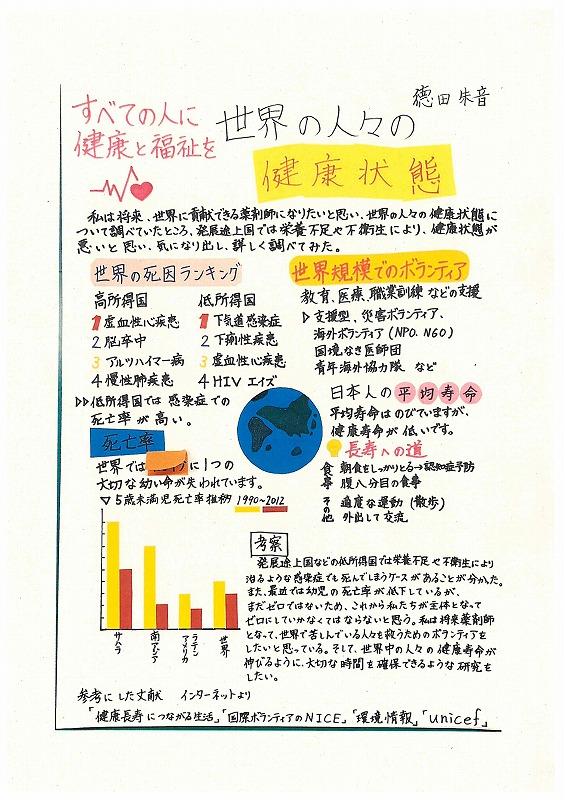 すべての人に
健康と福祉を
世界の人々の
健康状態
德田 朱音
私は将来、世界に貢献できる薬剤師になりたいと思い、世界の人々の健康状態に
ついて調べていたところ、発展途上国では栄養不足や不衛生により、健康状態が
悪いと思い、気になり出し、詳しく調べてみた。
世界の死因ランキング
高所得国
1 虚血性心疾患
2 脳卒中
3 アルツハイマー病
4 慢性肺疾患
低所得国
1 下気道感染症
2 下痢性疾患
3 虚血性心疾患
4 HIV エイズ
▷▷低所得国では感染症での
死亡率が高い。
死亡率
世界では
に1つの
大切な幼い命が失われています。
▽5歳未満児死亡率推移 1990~2012
サハラ
南アジア
ラテン
アメリカ
世界
世界規模でのボランティア
教育、医療、職業訓練などの支援
▷支援型、災害ボランティア、
海外ボランティア(NPO.NGO)
国境なき医師団
青年海外協力隊 など
日本人の平均寿命
平均寿命はのびていますが、
健康寿命が低いです。
長寿への道
食事 朝食をしっかりとる→認知症予防
腹八分目の食事
その他 適度な運動(散歩)
外出して交流
考察
発展途上国などの低所得国では栄養不足や不衛生により
治るような感染症でも死んでしまうケースがあることが分かった。
また、最近では幼児の死亡率が低下しているが、
まだゼロではないため、これから私たちが主体となって
ゼロにしていかなくてはならないと思う。私は将来薬剤師
となって、世界で苦しんでいる人々を救うためのボランティアを
したいと思っている。そして、世界中の人々の健康寿命が
伸びるように、大切な時間を確保できるような研究を
したい。
参考にした文献 インターネットより
「健康長寿につながる生活」「国際ボランティアのNICE」「環境情報」「unicef」